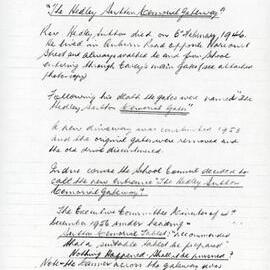 "The Hedley Sutton Memorial Gateway"
Rev. Hedley Sutton died on 6th February, 1946.
He lived on Auburn Road opposite Harcourt
Street and always walked to and from School
entering through Carey's main gates (see attached
photocopy)
Following his death the Gates were named "The
Hedley Sutton Memorial Gates"
A new driveway was constructed 1953
and the original gates were removed and
the old drive discontinued.
In due course the School Council decided to
call the new entrance "The Hedley Sutton
Memorial Gateway"
The Executive Committee Minutes of
December 1956 under heading
Sutton Memorial Tablet "recommended
that a suitable tablet be prepared"
Nothing Happened. Shall it be pursued?
Note the banner across the gateway was